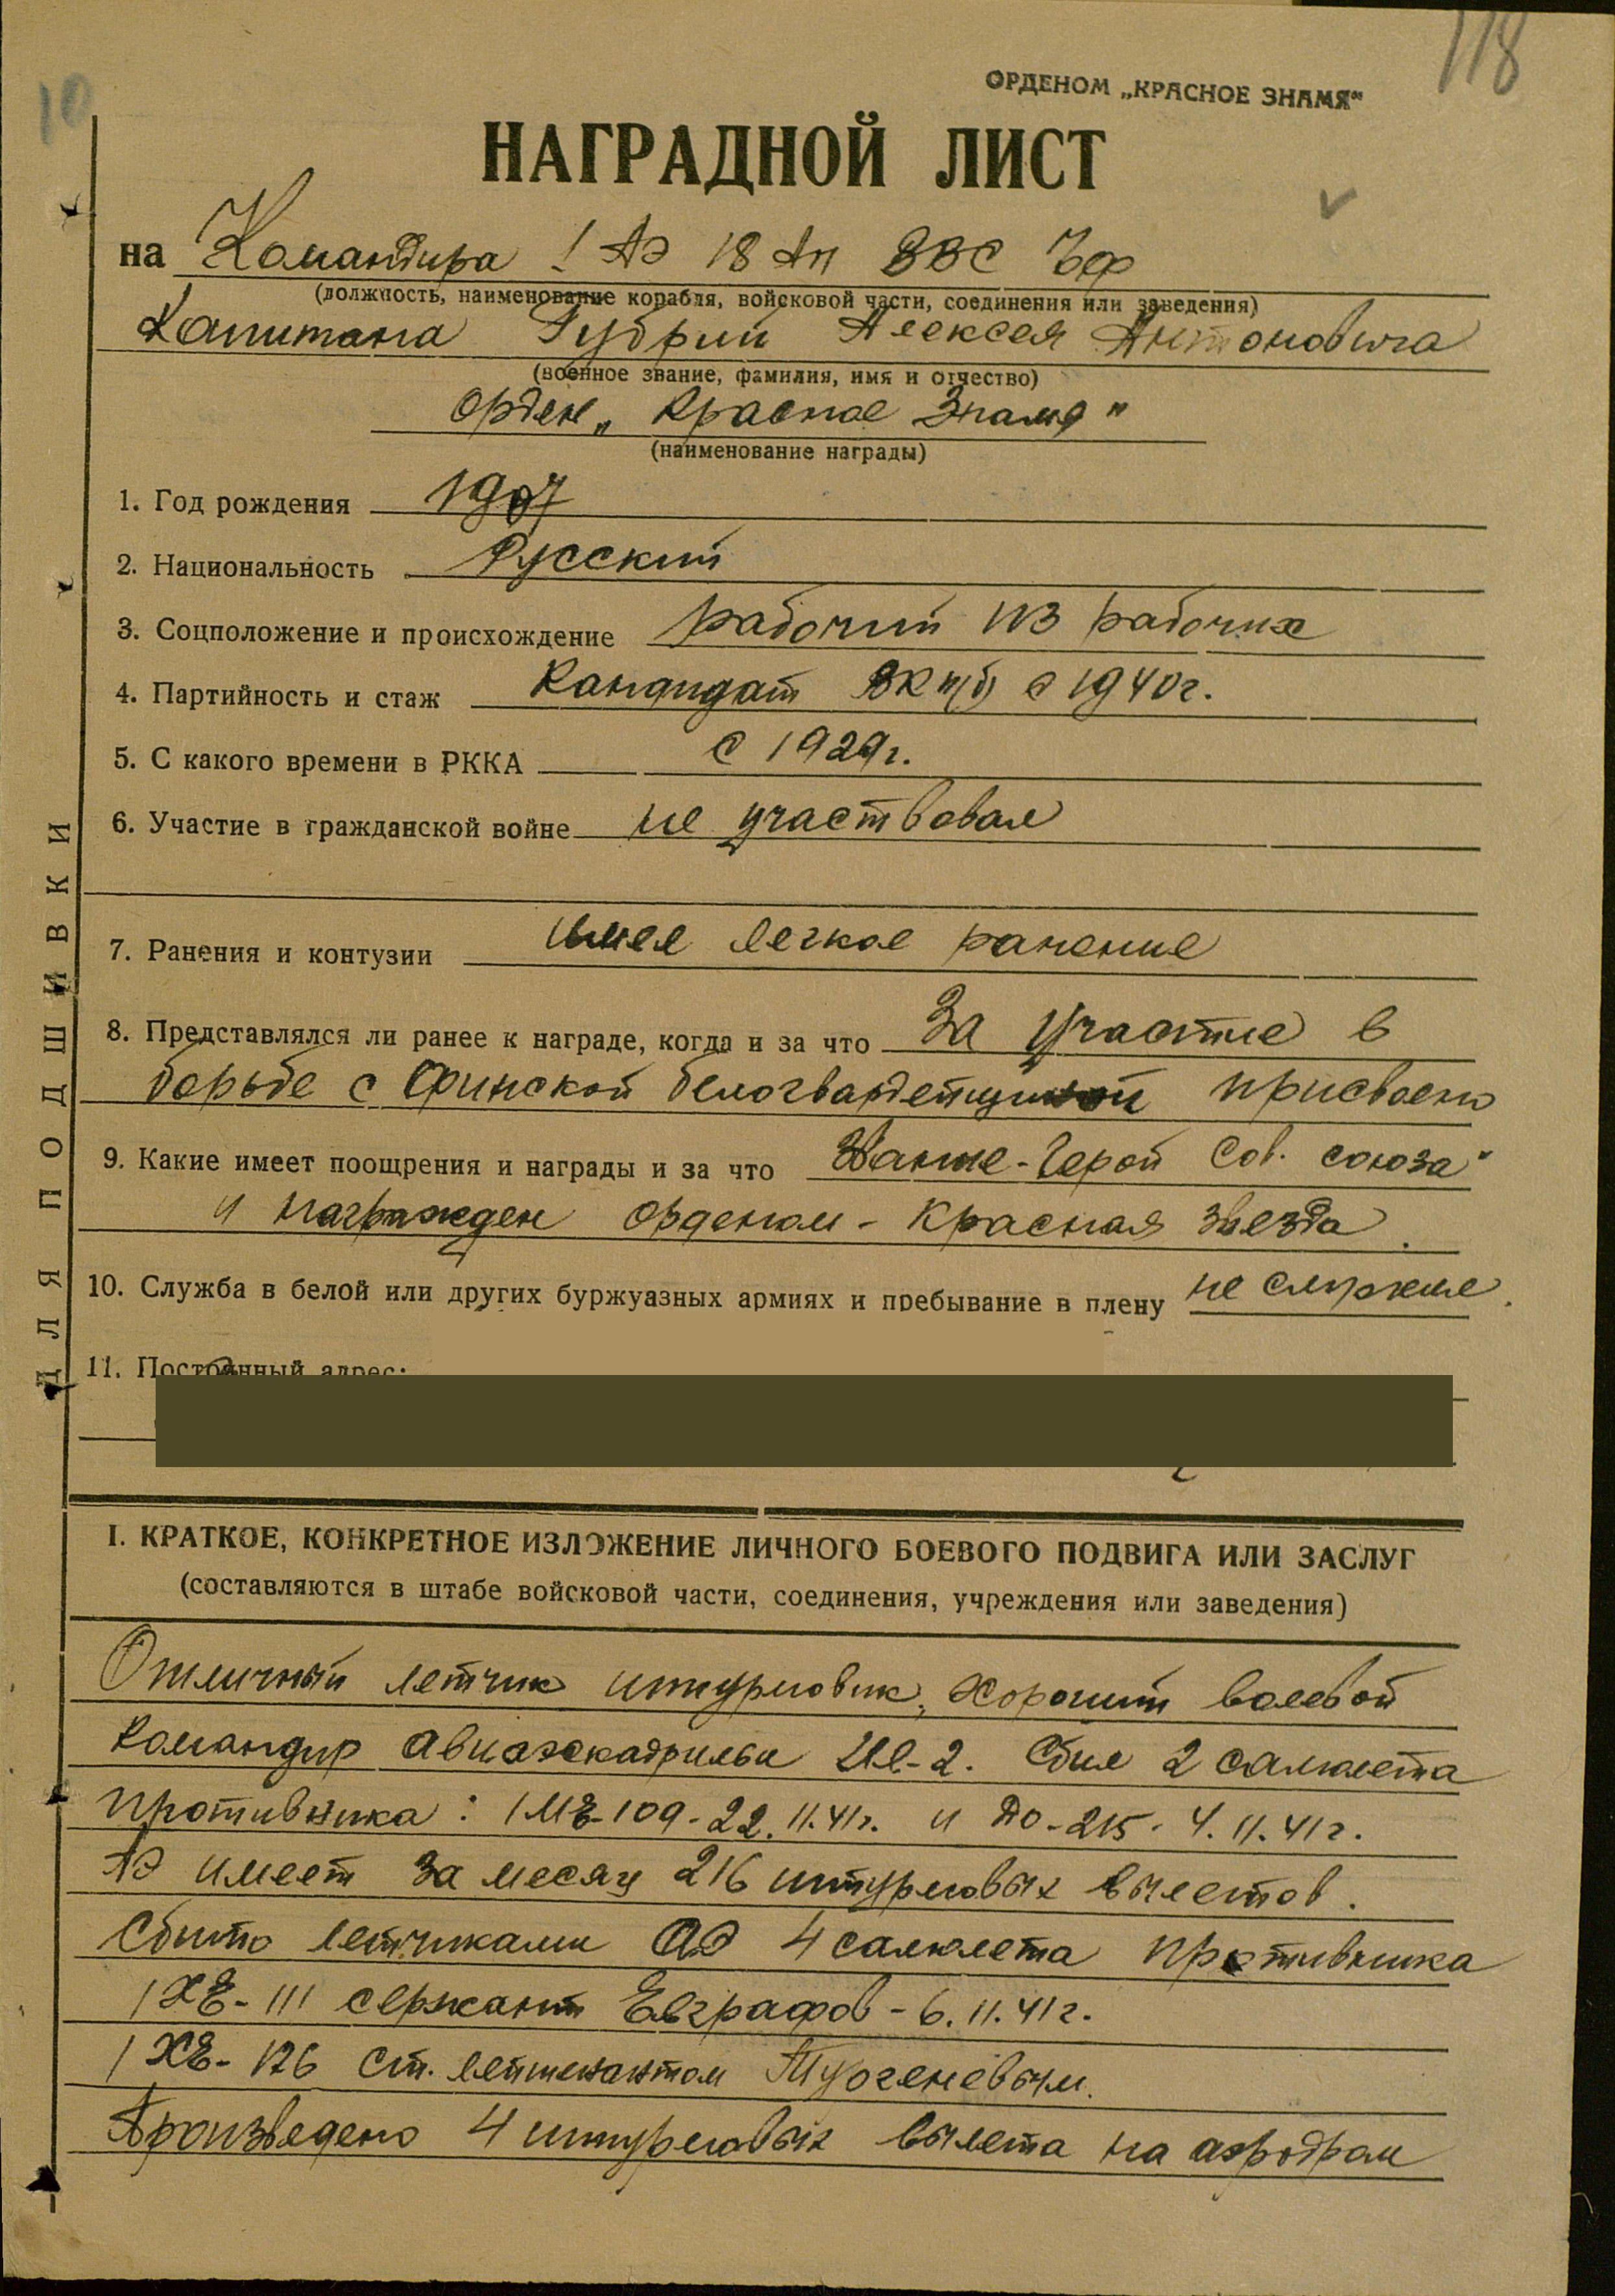 118
10
ОРДЕНОМ „КРАСНОЕ ЗНАМЯ"
НАГРАДНОЙ ЛИСТ
на Командира 1 АЭ 18 Ап ВВС ЧФ
(должность, наименование корабля, войсковой части, соединения или заведения)
Капитана Губрий Алексея Антоновича
(военное звание, фамилия, имя и отчество)
Орден „Красное Знамя"
(наименование награды)
1. Год рождения 1907
2. Национальность Русский
3. Соцположение и происхождение рабочий из рабочих
4. Партийность и стаж Кандидат ВКП(б) с 1940г.
5. С какого времени в РККА с 1929г.
6. Участие в гражданской войне не участвовал
7. Ранения и контузии имел легкое ранение
8. Представлялся ли ранее к награде, когда и за что За участие в
борьбе с Финской белогвардейщиной присвоено
9. Какие имеет поощрения и награды и за что звание-Герой Сов. союза"
и награжден орденом - Красная звезда.
10. Служба в белой или других буржуазных армиях и пребывание в плену не служил.
11. Постоянный адрес:
ДЛЯ ПОДШИВКИ
I. КРАТКОЕ, КОНКРЕТНОЕ ИЗЛОЖЕНИЕ ЛИЧНОГО БОЕВОГО ПОДВИГА ИЛИ ЗАСЛУГ
(составляются в штабе войсковой части, соединения, учреждения или заведения)
Отличный летчик штурмовик, хороший волевой
командир авиаэскадрильи Ил-2. Сбил 2 самолета
противника: 1 МЕ-109-22.11.41г. и До-215-4.11.41г.
АЭ имеет за месяц 216 штурмовых вылетов.
Сбито летчиками АЭ 4 самолета противника
1 ХЕ-111 сержант Евграфов - 6.11.41г.
1 ХЕ-126 ст. лейтенантом Тургеневым.
Произведено 4 штурмовых вылета на аэродром